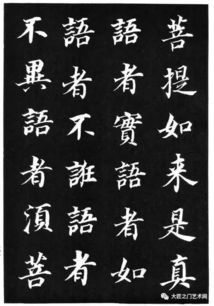 菩提如来是真
語者實語者如
語者不誑語者
不異語者湏菩
大匠之门艺术网